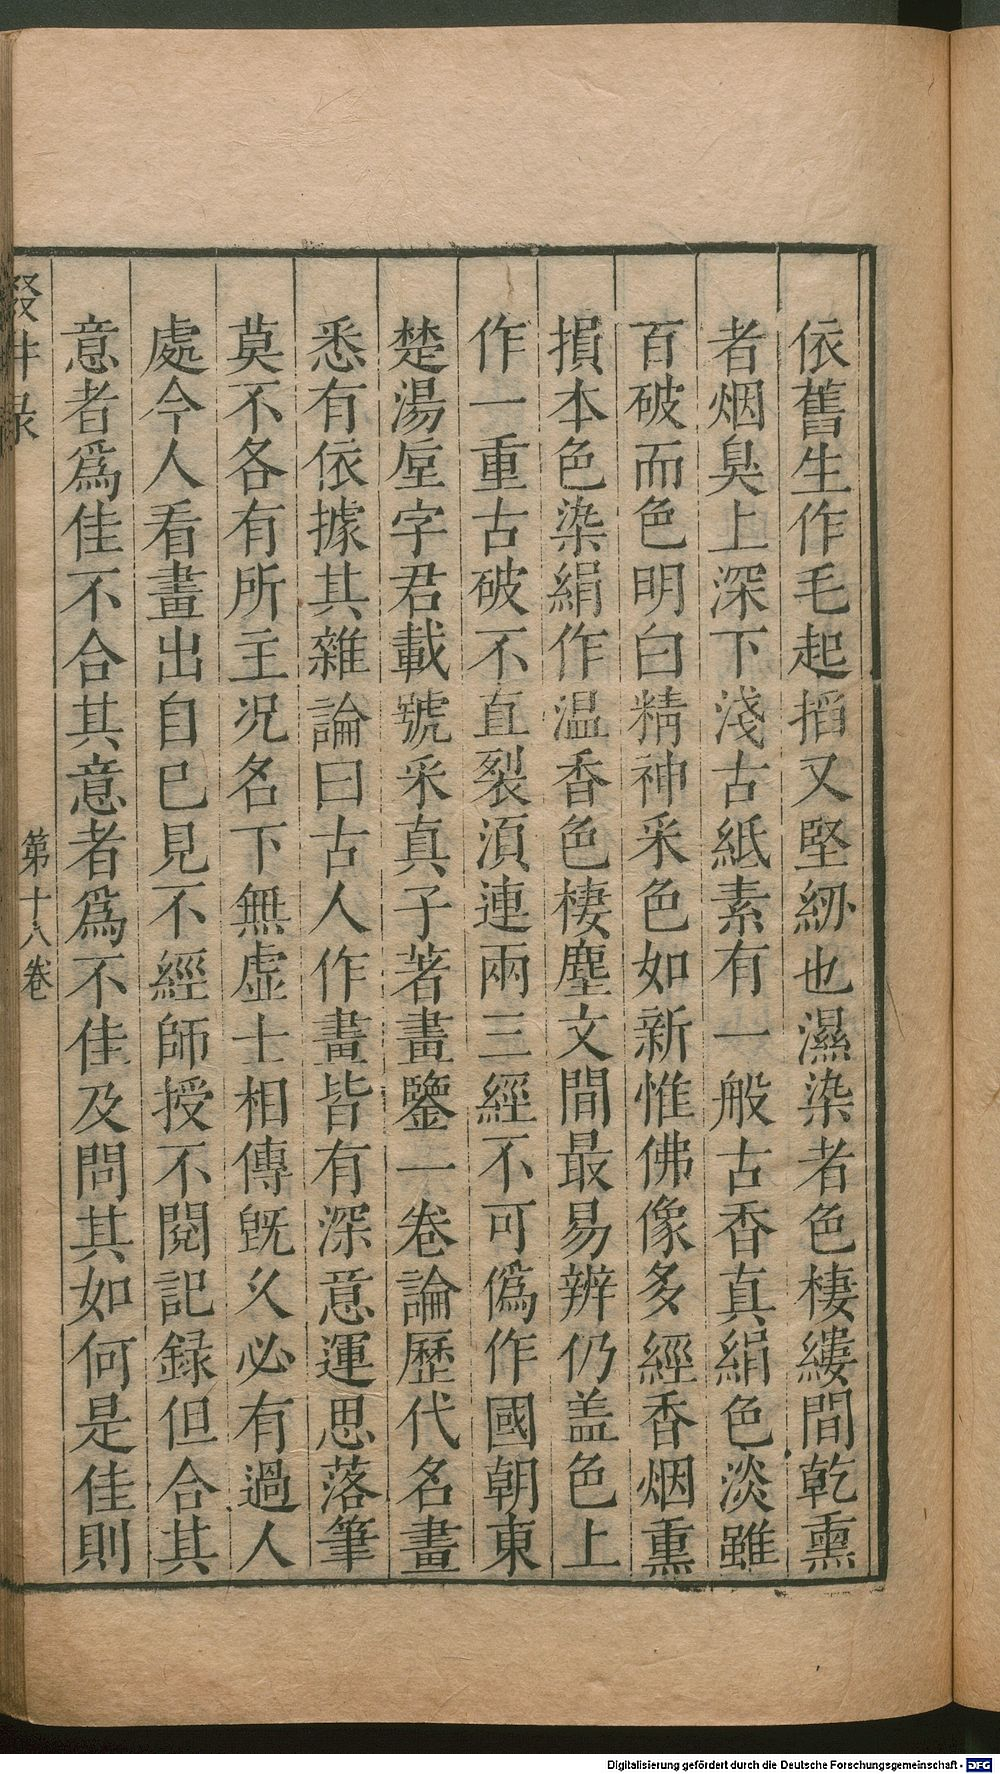 依舊生作毛起搯又堅紉也濕染者色棲縷間乾熏
者烟臭上深下淺古紙素有一般古香真絹色淡雖
百破而色明白精神采色如新惟佛像多經香烟熏
損本色染絹作温香色棲塵文間最易辨仍盖色上
作一重古破不直裂湏連兩三經不可僞作國朝東
楚湯垕字君載號采真子著畫鑒一卷論歷代名畫
悉有依據其雜論曰古人作畫皆有深意運思落筆
莫不各有所主况名下無虚士相傳旣久必有過人
處今人看畫出自巳見不經師授不閱記録但合其
意者爲佳不合其意者爲不佳及問其如何是佳則
第十八卷
Digitalisierung gefördert durch die Deutsche Forschungsgemeinschaft - DFG